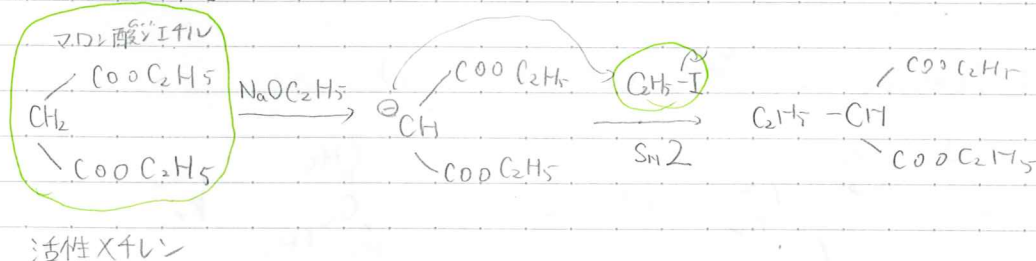 マロン酸ジエチル
COOC2H5
CH2
COOC2H5
NaOC2H5
⊖
CH
COOC2H5
COOC2H5
C2H5-I
SN2
C2H5-CH
COOC2H5
COOC2H5
活性メチレン